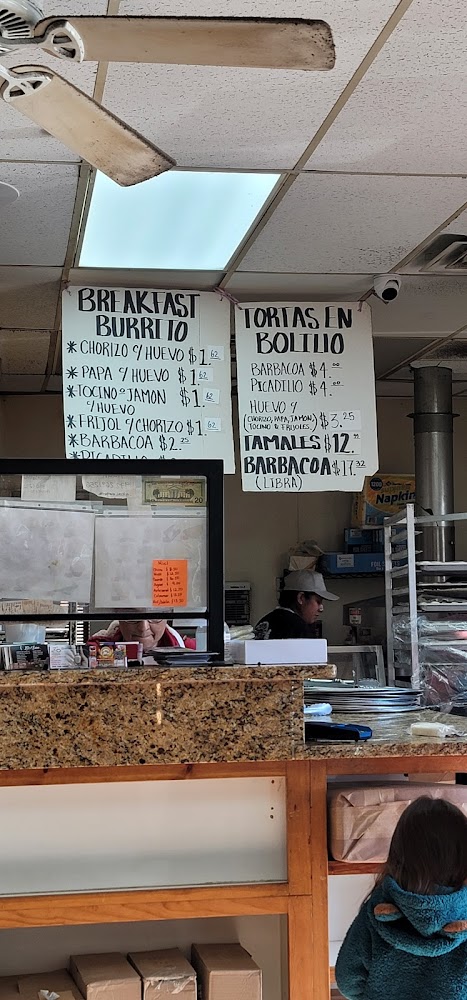 BREAKFAST
BURRITO
* CHORIZO Y HUEVO $1.62
* PAPA Y HUEVO $1.62
* TOCINO O JAMON $1.62
Y HUEVO
* FRIJOL Y CHORIZO $1.62
* BARBACOA $2.25
TORTAS EN
BOLILIO
BARBACOA $4.00
PICADILLO $4.00
HUEVO Y
(CHORIZO, PAPA, JAMON, $3.25
TOCINO O FRIJOLES)
TAMALES $12.99
BARBACOA $17.32
(LIBRA)
Napkin
20